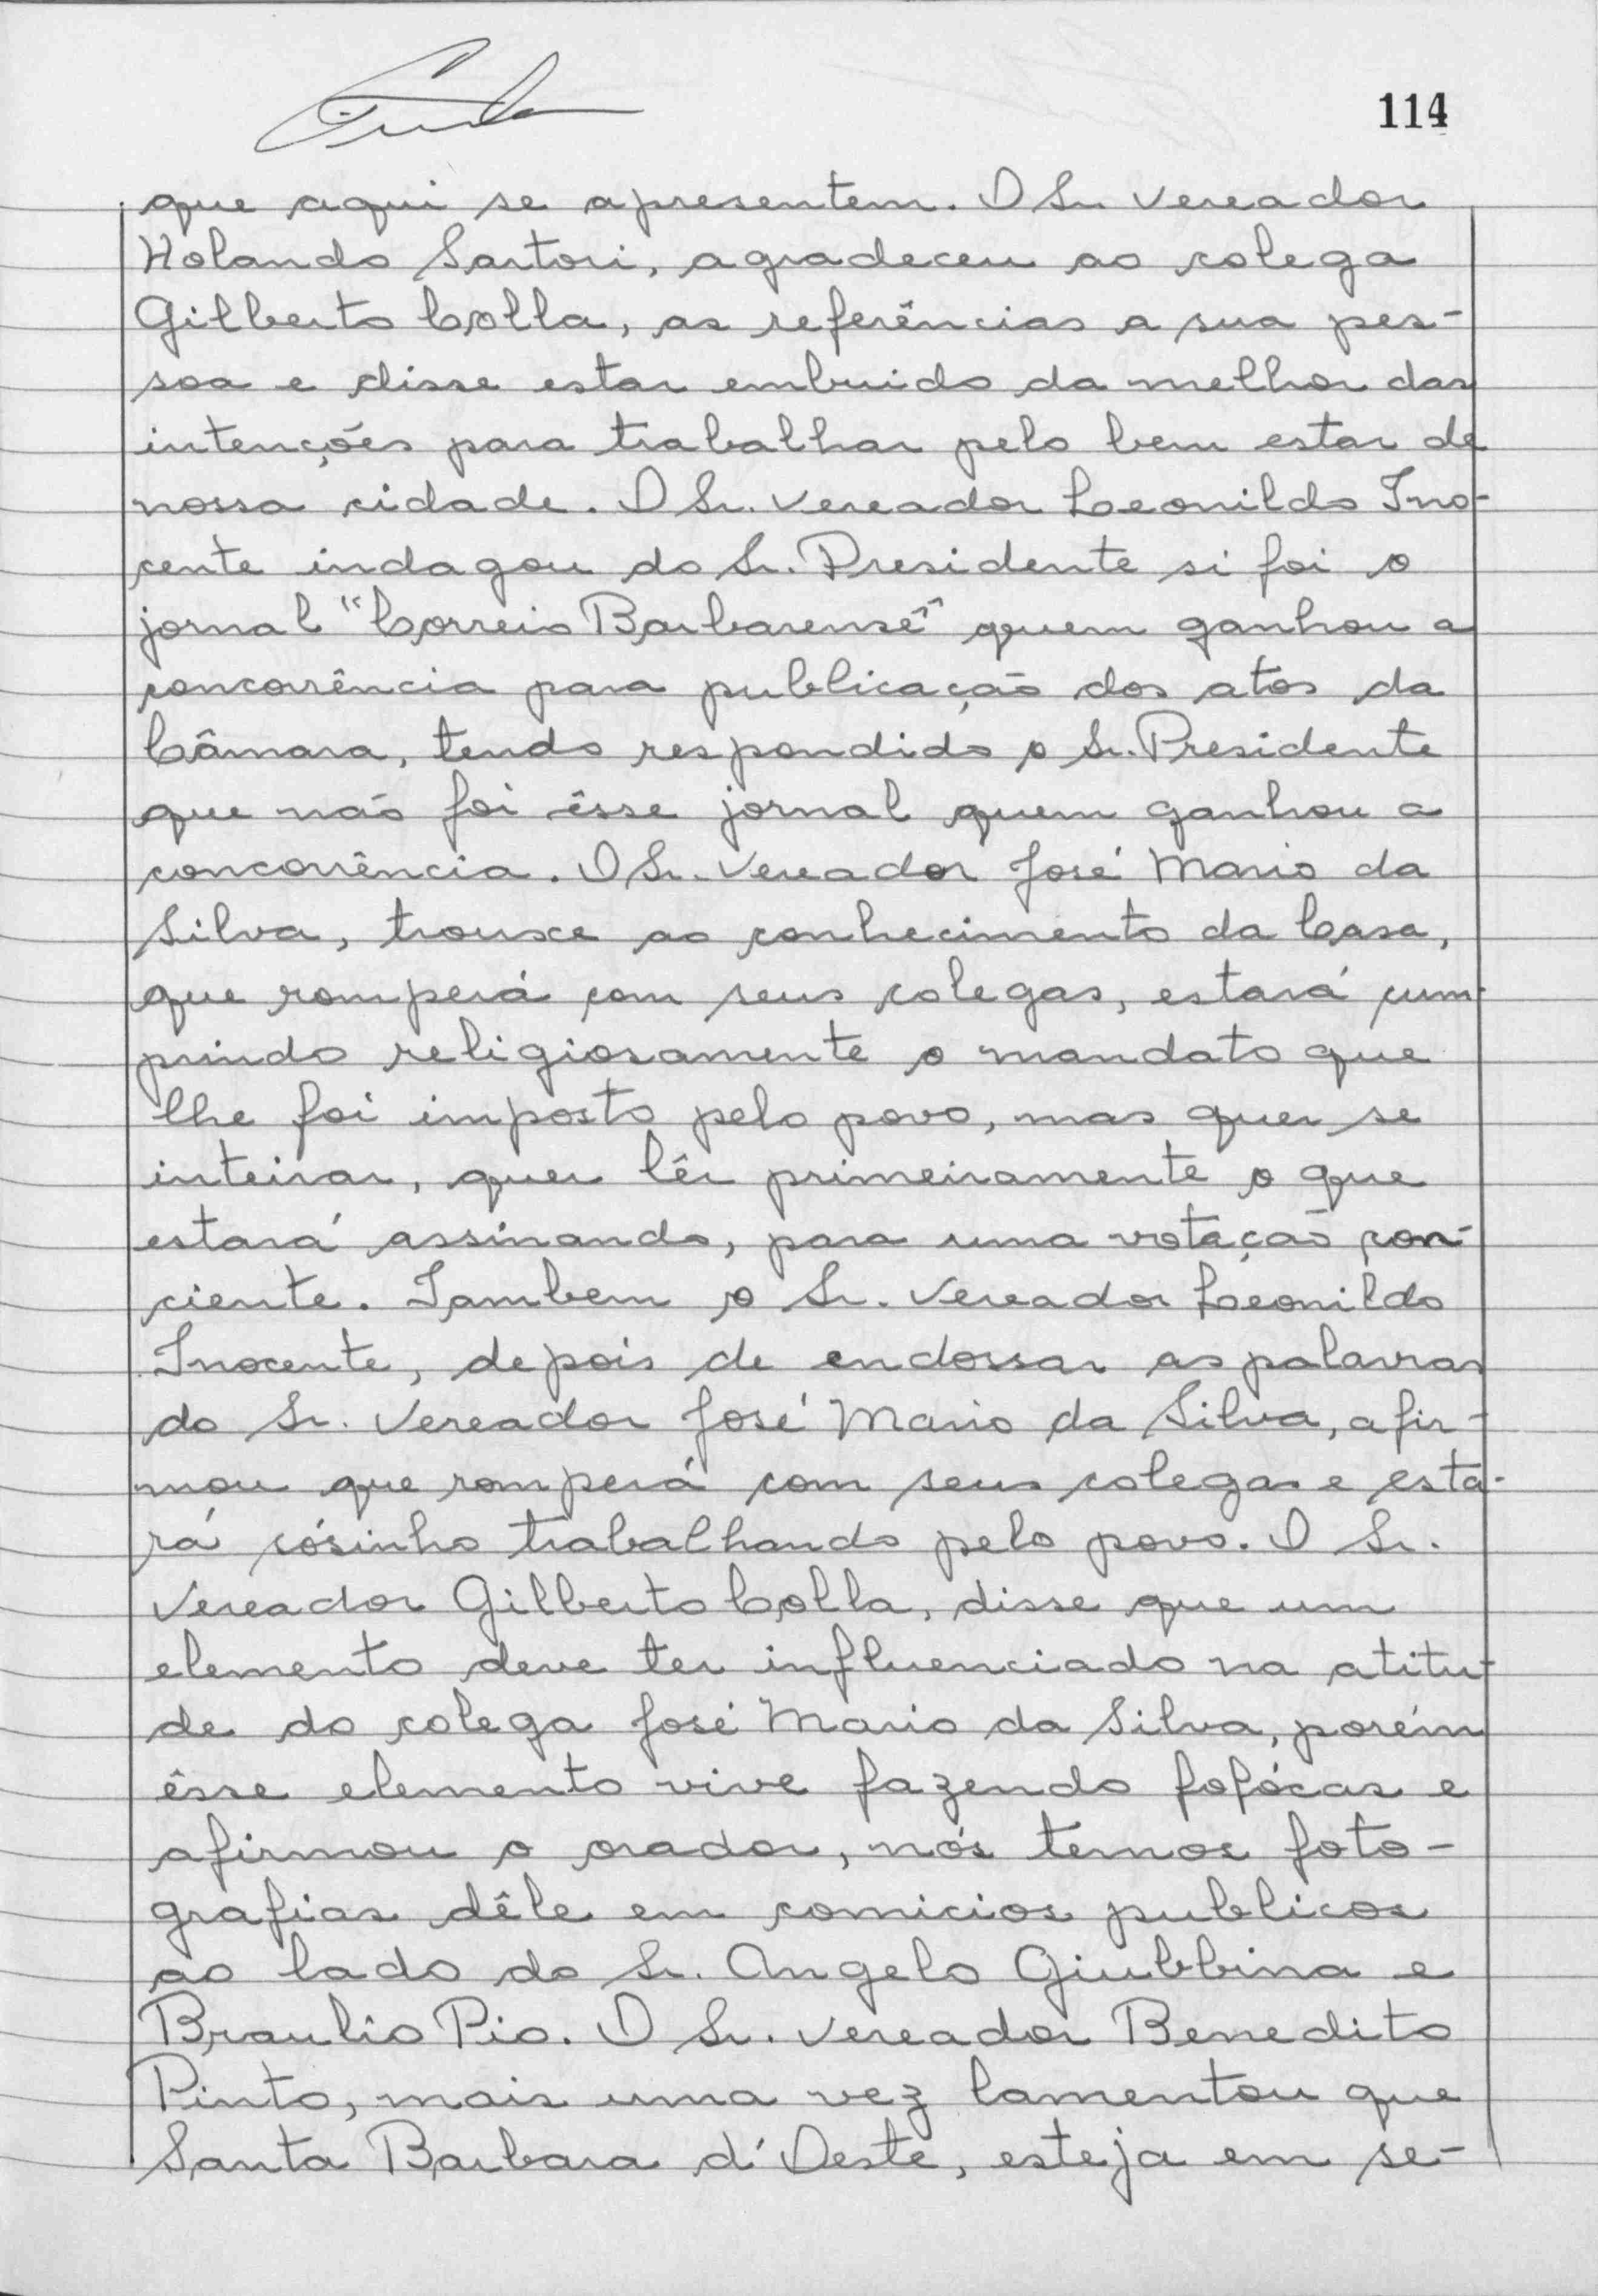 114
que aqui se apresentem. O Sr. Vereador
Holando Sartori, agradeceu ao colega
Gilberto Colla, as referências a sua pes-
soa e disse estar embuido da melhor das
intenções para trabalhar pelo bem estar de
nossa cidade. O Sr. Vereador Leonildo Ino-
cente indagou do Sr. Presidente si foi o
jornal "Correio Barbarense" quem ganhou a
concorrência para publicação dos atos da
Câmara, tendo respondido o Sr. Presidente
que não foi êsse jornal quem ganhou a
concorrência. O Sr. Vereador José Mario da
Silva, trouxe ao conhecimento da Casa,
que romperá com seus colegas, estará cum-
prindo religiosamente o mandato que
lhe foi imposto pelo povo, mas quer se
inteirar, quer lêr primeiramente o que
estará assinando, para uma votação con-
ciente. Tambem o Sr. Vereador Leonildo
Inocente, depois de endossar as palavras
do Sr. Vereador José Mario da Silva, afir-
mou que romperá com seus colegas e esta-
rá sósinho trabalhando pelo povo. O Sr.
Vereador Gilberto Colla, disse que um
elemento deve ter influenciado na atitu-
de do colega José Mario da Silva, porém
êsse elemento vive fazendo fofócas e
afirmou o orador, nós temos foto-
grafias dêle em comicios publicos
ao lado do Sr. Angelo Giubbina e
Braulio Pio. O Sr. Vereador Benedito
Pinto, mais uma vez lamentou que
Santa Barbara d'Oeste, esteja em se-